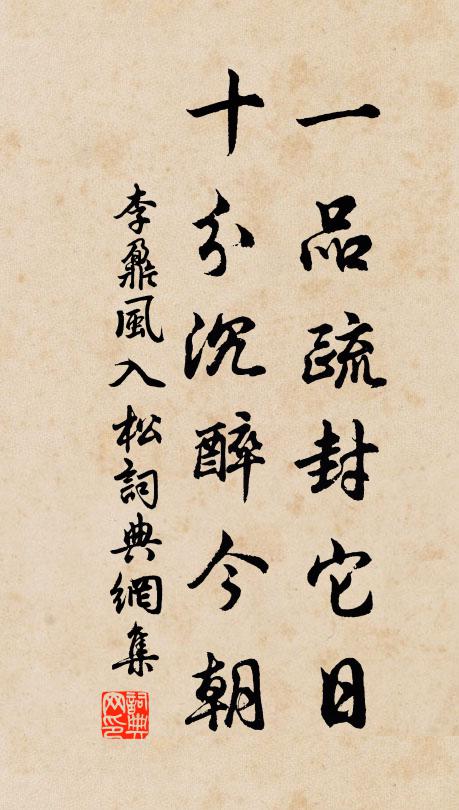 一品疏封它日
十分沉醉今朝
李鼐風入松詞典網集
詞典网印